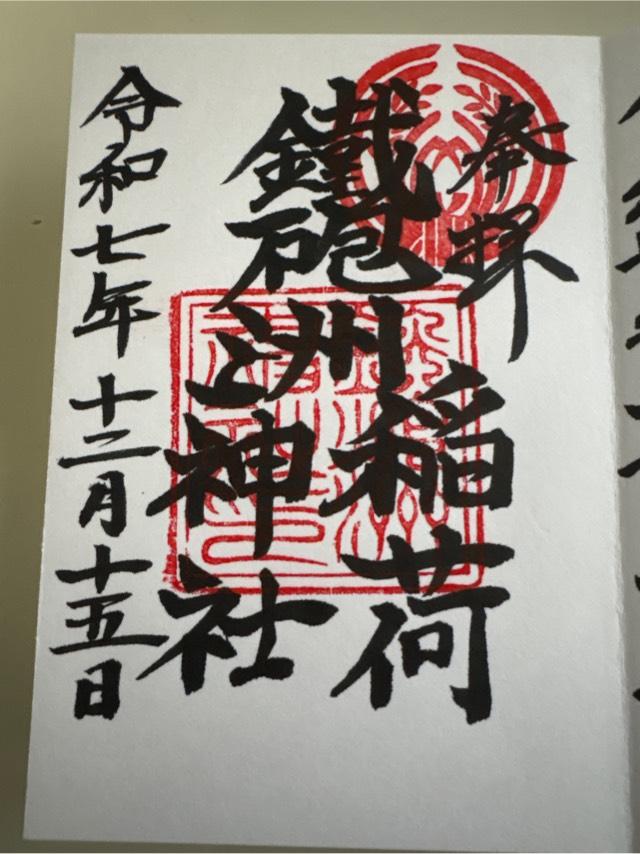 奉拝
鐵砲洲
稲荷
神社
令和七年十二月十五日